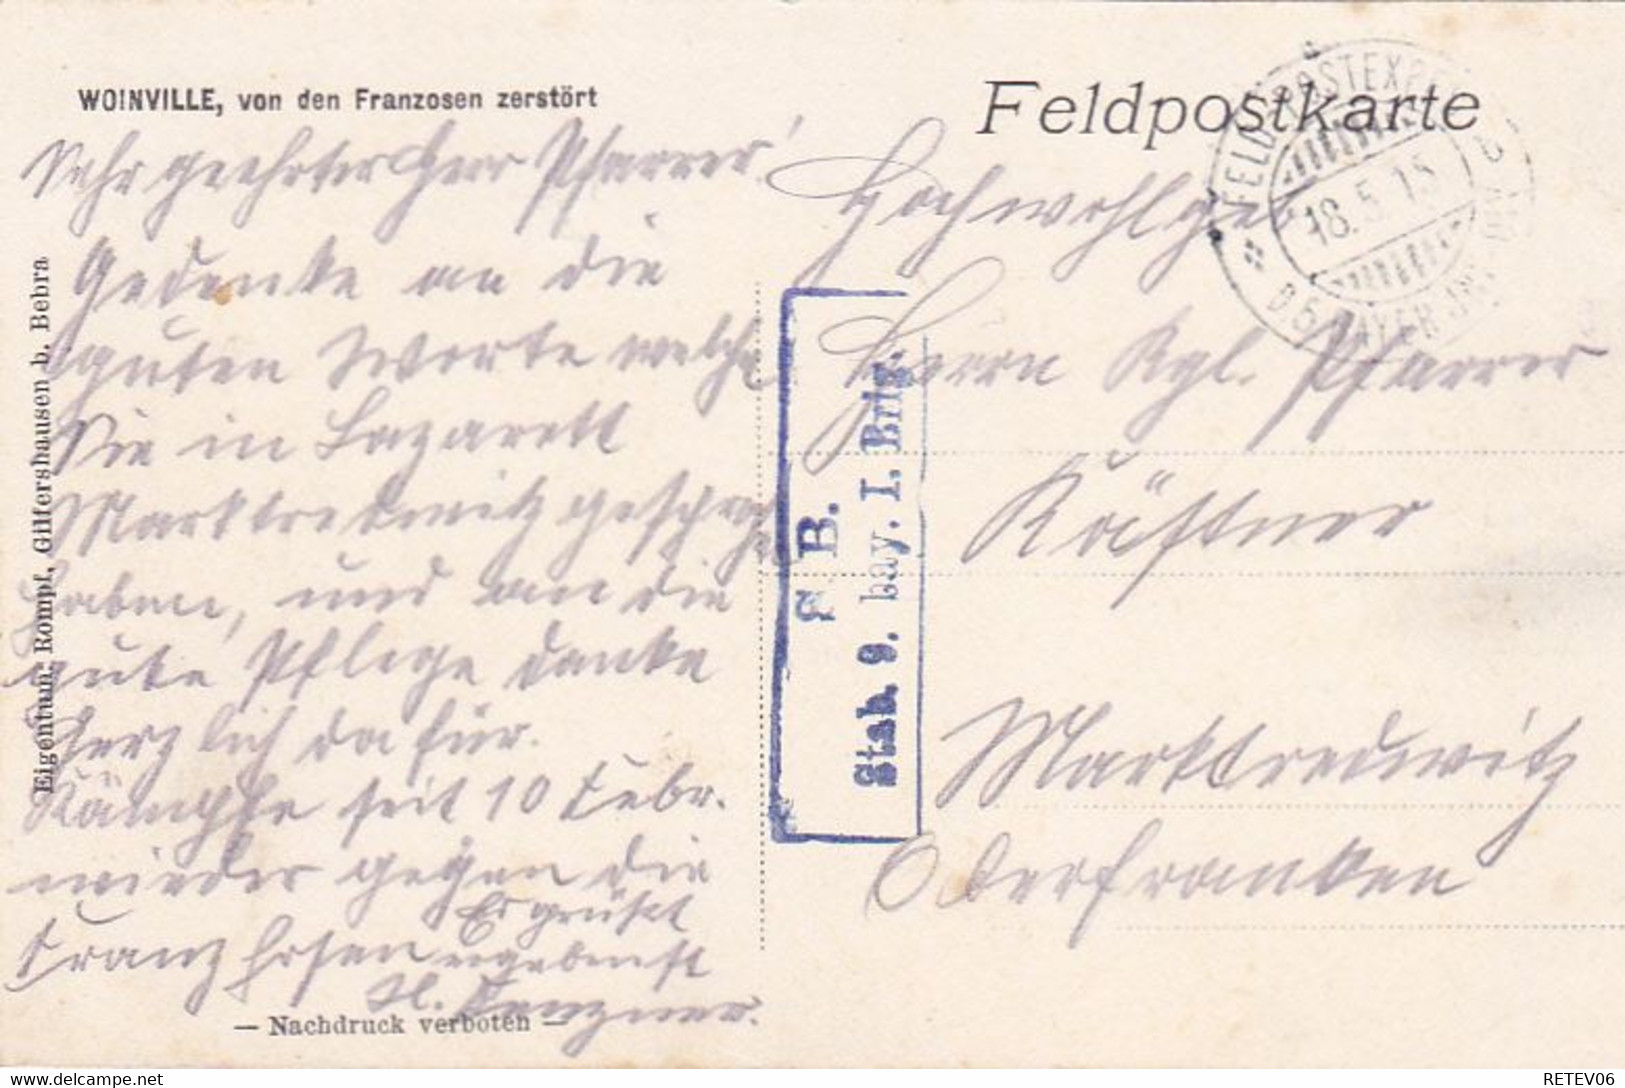 WOINVILLE, von den Franzosen zerstört
Sehr geehrter Herr Pfarrer!
Gedenke an die
guten Worte welche
Sie in Lazarett
Marktredwitz gesprochen
haben, und an die
gute Pflege danke
herzlich dafür.
Kämpfe seit 10 Febr.
wieder gegen die
Franzosen
Es grüßt
ergebenst
— Nachdruck verboten —
Eigentum: Rompf, Gilfershausen b. Bebra
Feldpostkarte
FELDPOSTEXPED
18.5.15
D 5. BAYER. INF.
S. B.
Stab. 9. bay. I. Brig.
Hochwohlgeb
Herrn Kgl. Pfarrer
Kästner
Marktredwitz
Oberfranken
RETEV06